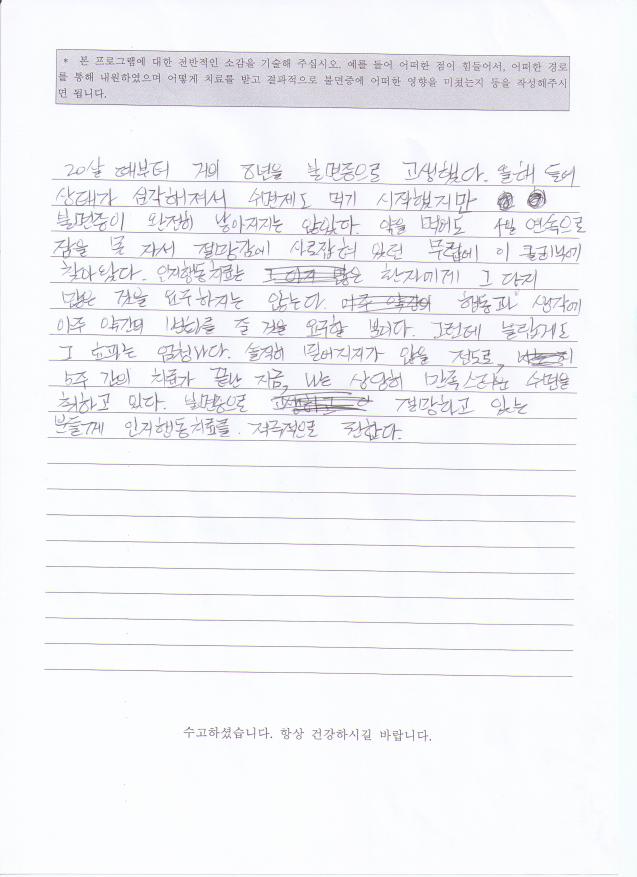 * 본 프로그램에 대한 전반적인 소감을 기술해 주십시오. 예를 들어 어떠한 점이 힘들어서, 어떠한 경로
를 통해 내원하였으며 어떻게 치료를 받고 결과적으로 불면증에 어떠한 영향을 미쳤는지 등을 작성해주시
면 됩니다.
20살 때부터 거의 8년을 불면증으로 고생했다. 올해 들어
상태가 심각해져서 수면제도 먹기 시작했지만
불면증이 완전히 낳아지지는 않았다. 약을 먹어도 4일 연속으로
잠을 못 자서 절망감에 사로잡혀 있던 무렵에 이 클리닉에
찾아왔다. 인지행동치료는 환자에게 그 다지
많은 것을 요구하지는 않는다. 행동과 생각에
아주 약간의 변화를 줄 것을 요구할 뿐이다. 그런데 놀랍게도
그 효과는 엄청나다. 솔직히 믿어지지가 않을 정도로,
5주 간의 치료가 끝난 지금, 나는 상당히 만족스러운 수면을
취하고 있다. 불면증으로 절망하고 있는
분들께 인지행동치료를 적극적으로 권한다.
수고하셨습니다. 항상 건강하시길 바랍니다.